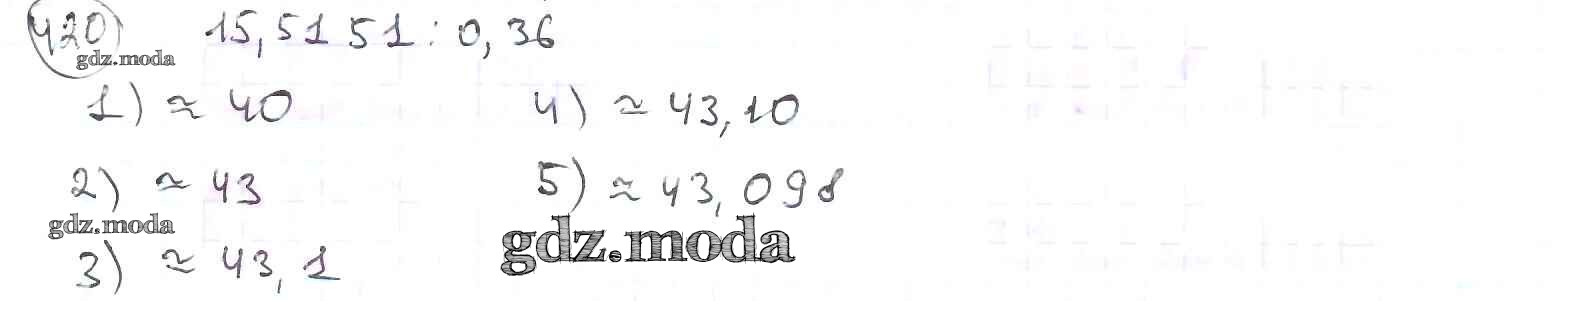 420) 15,5151 : 0,36
gdz.moda
1) ≈ 40
4) ≈ 43,10
2) ≈ 43
5) ≈ 43,098
gdz.moda
gdz.moda
3) ≈ 43,1